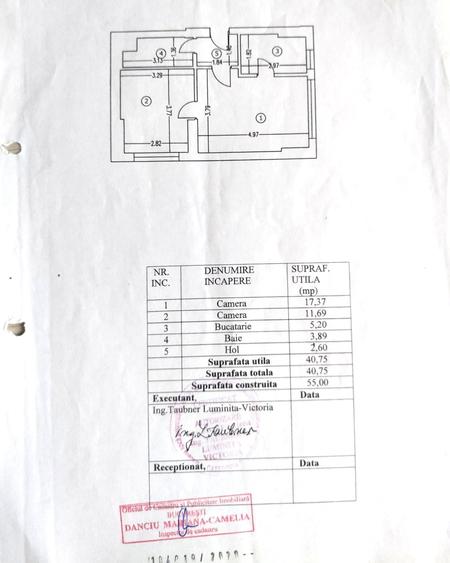 4
1,36
3.13
5
1.84
1,95
3
2.97
3.29
2
3.77
3,79
1
2.82
4.97
NR. INC. DENUMIRE INCAPERE SUPRAF. UTILA (mp)
1 Camera 17,37
2 Camera 11,69
3 Bucatarie 5,20
4 Baie 3,89
5 Hol 2,60
Suprafata utila 40,75
Suprafata totala 40,75
Suprafata construita 55,00
Executant, Data
Ing.Taubner Luminita-Victoria
Ing L Taubner
LUMINITA
VICTORIA
Receptionat, Data
Oficiul de Cadastru si Publicitate Imobiliară
BUCUREȘTI
DANCIU MARIANA-CAMELIA
Inspector cadastru